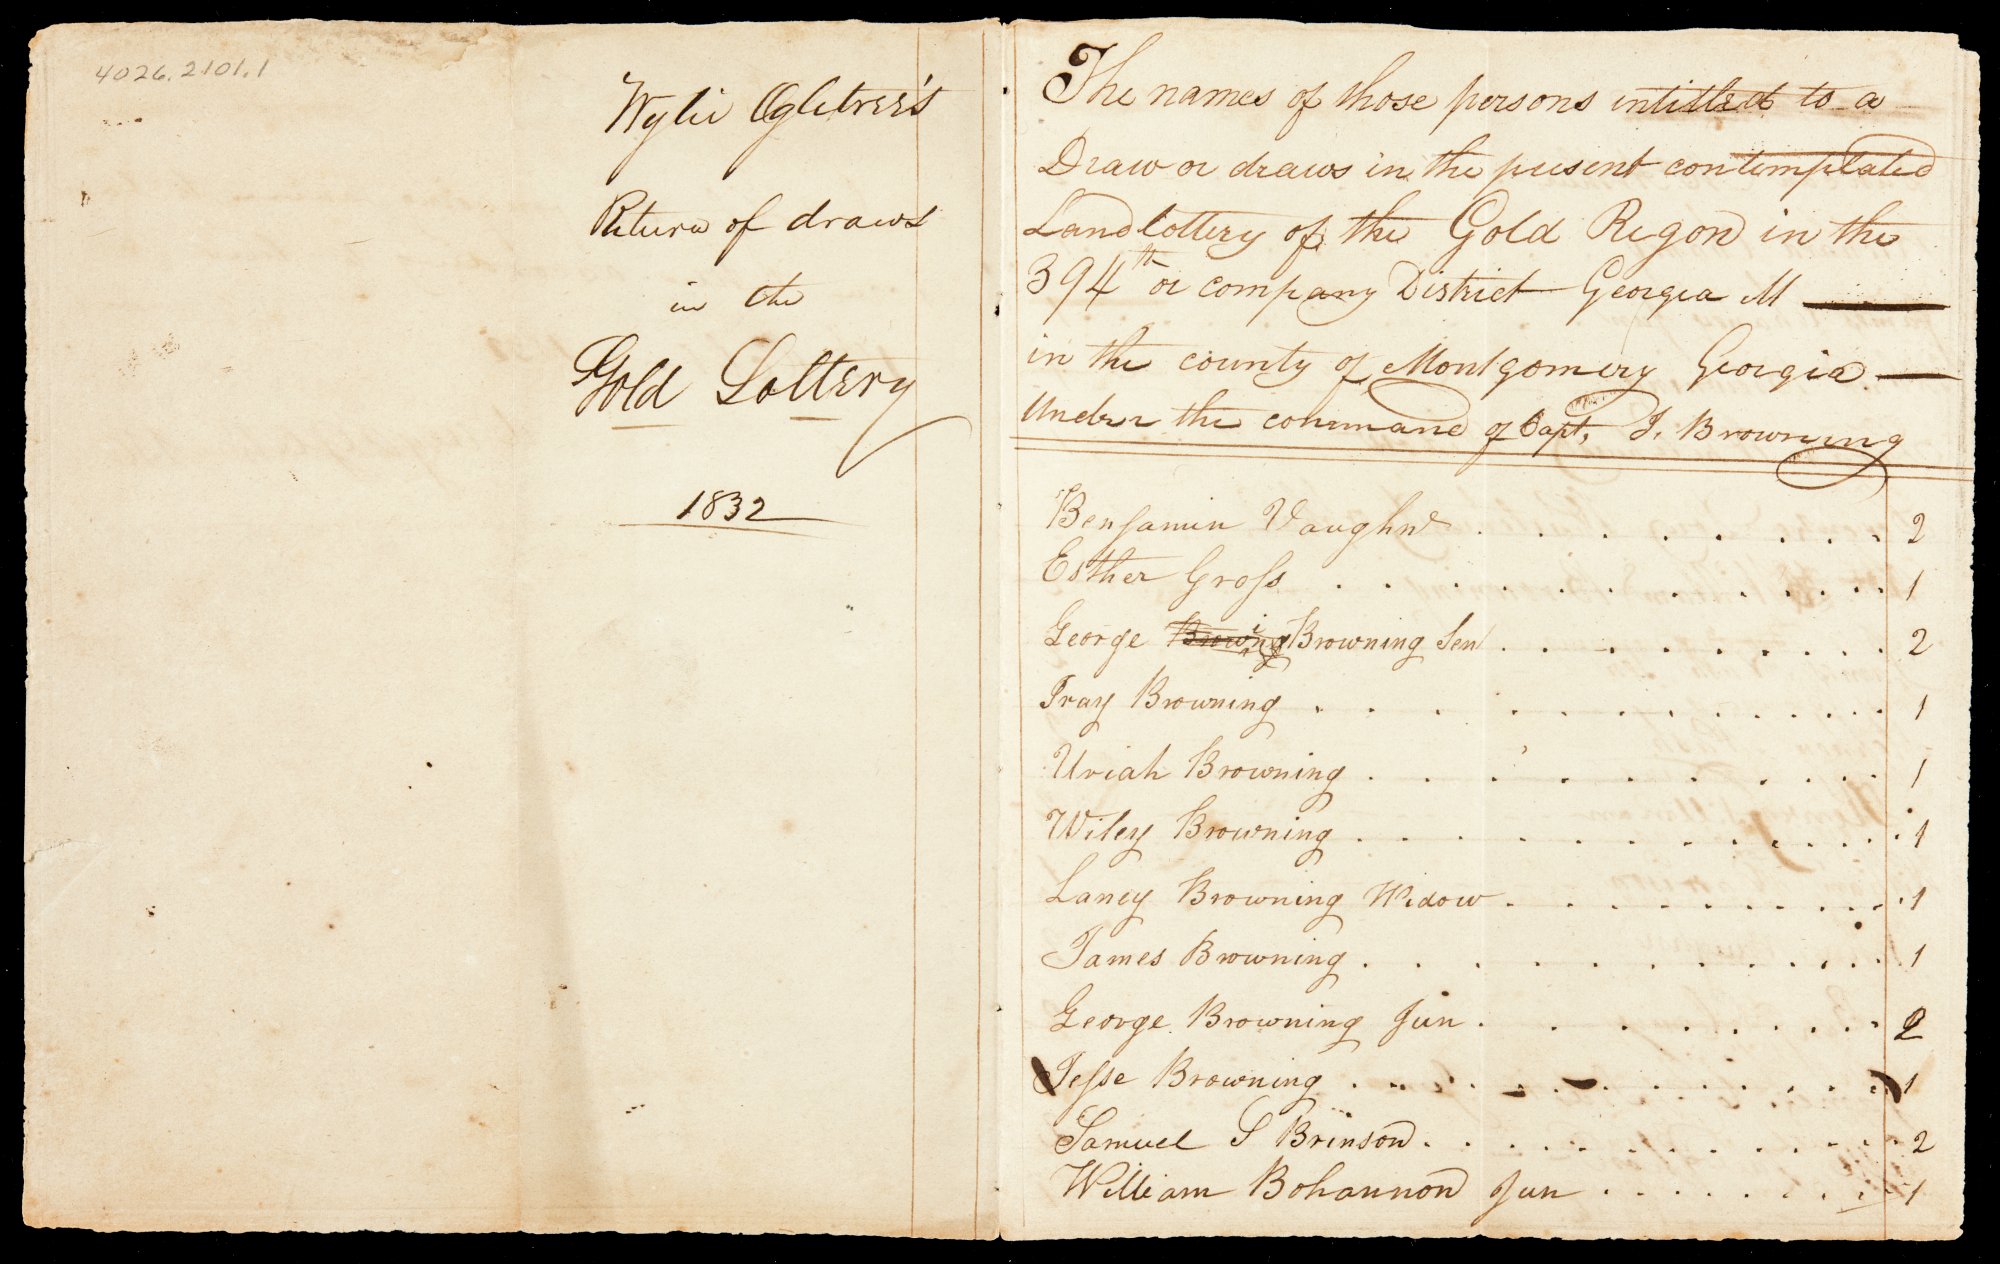 4026.2101.1
Wylie Ogletree's
Return of draws
in the
Gold Lottery
1832
The names of those persons intitled to a
Draw or draws in the present contemplated
Land lottery of the Gold Regon in the
394th or company District Georgia M
in the county of Montgomery Georgia
Under the command of Capt, J. Browning
Benjamin Vaughn . . . . . . . . 2
Esther Gross . . . . . . . . . . 1
George Browing Browning Sen . . . . . . . . . 2
Iray Browning . . . . . . . . . . 1
Uriah Browning . . . . . . . . . . 1
Wiley Browning . . . . . . . . . . 1
Laney Browning Widow . . . . . . . . . . 1
James Browning . . . . . . . . . . 1
George Browning Jun . . . . . . . . . 2
Jesse Browning . . . . . . . . . . 1
Samuel S Brinson . . . . . . . . . . 2
William Bohannon Jun . . . . . . . . 1